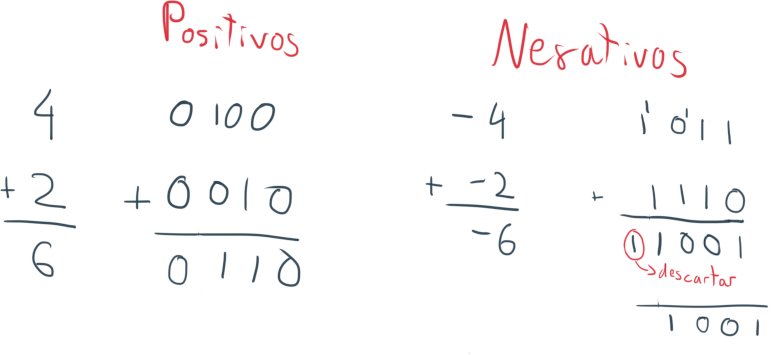 Positivos
4 0100
+ 2 + 0010
6 0110
Negativos
- 4 1011
+ -2 + 1110
-6 11001
descartar
1001